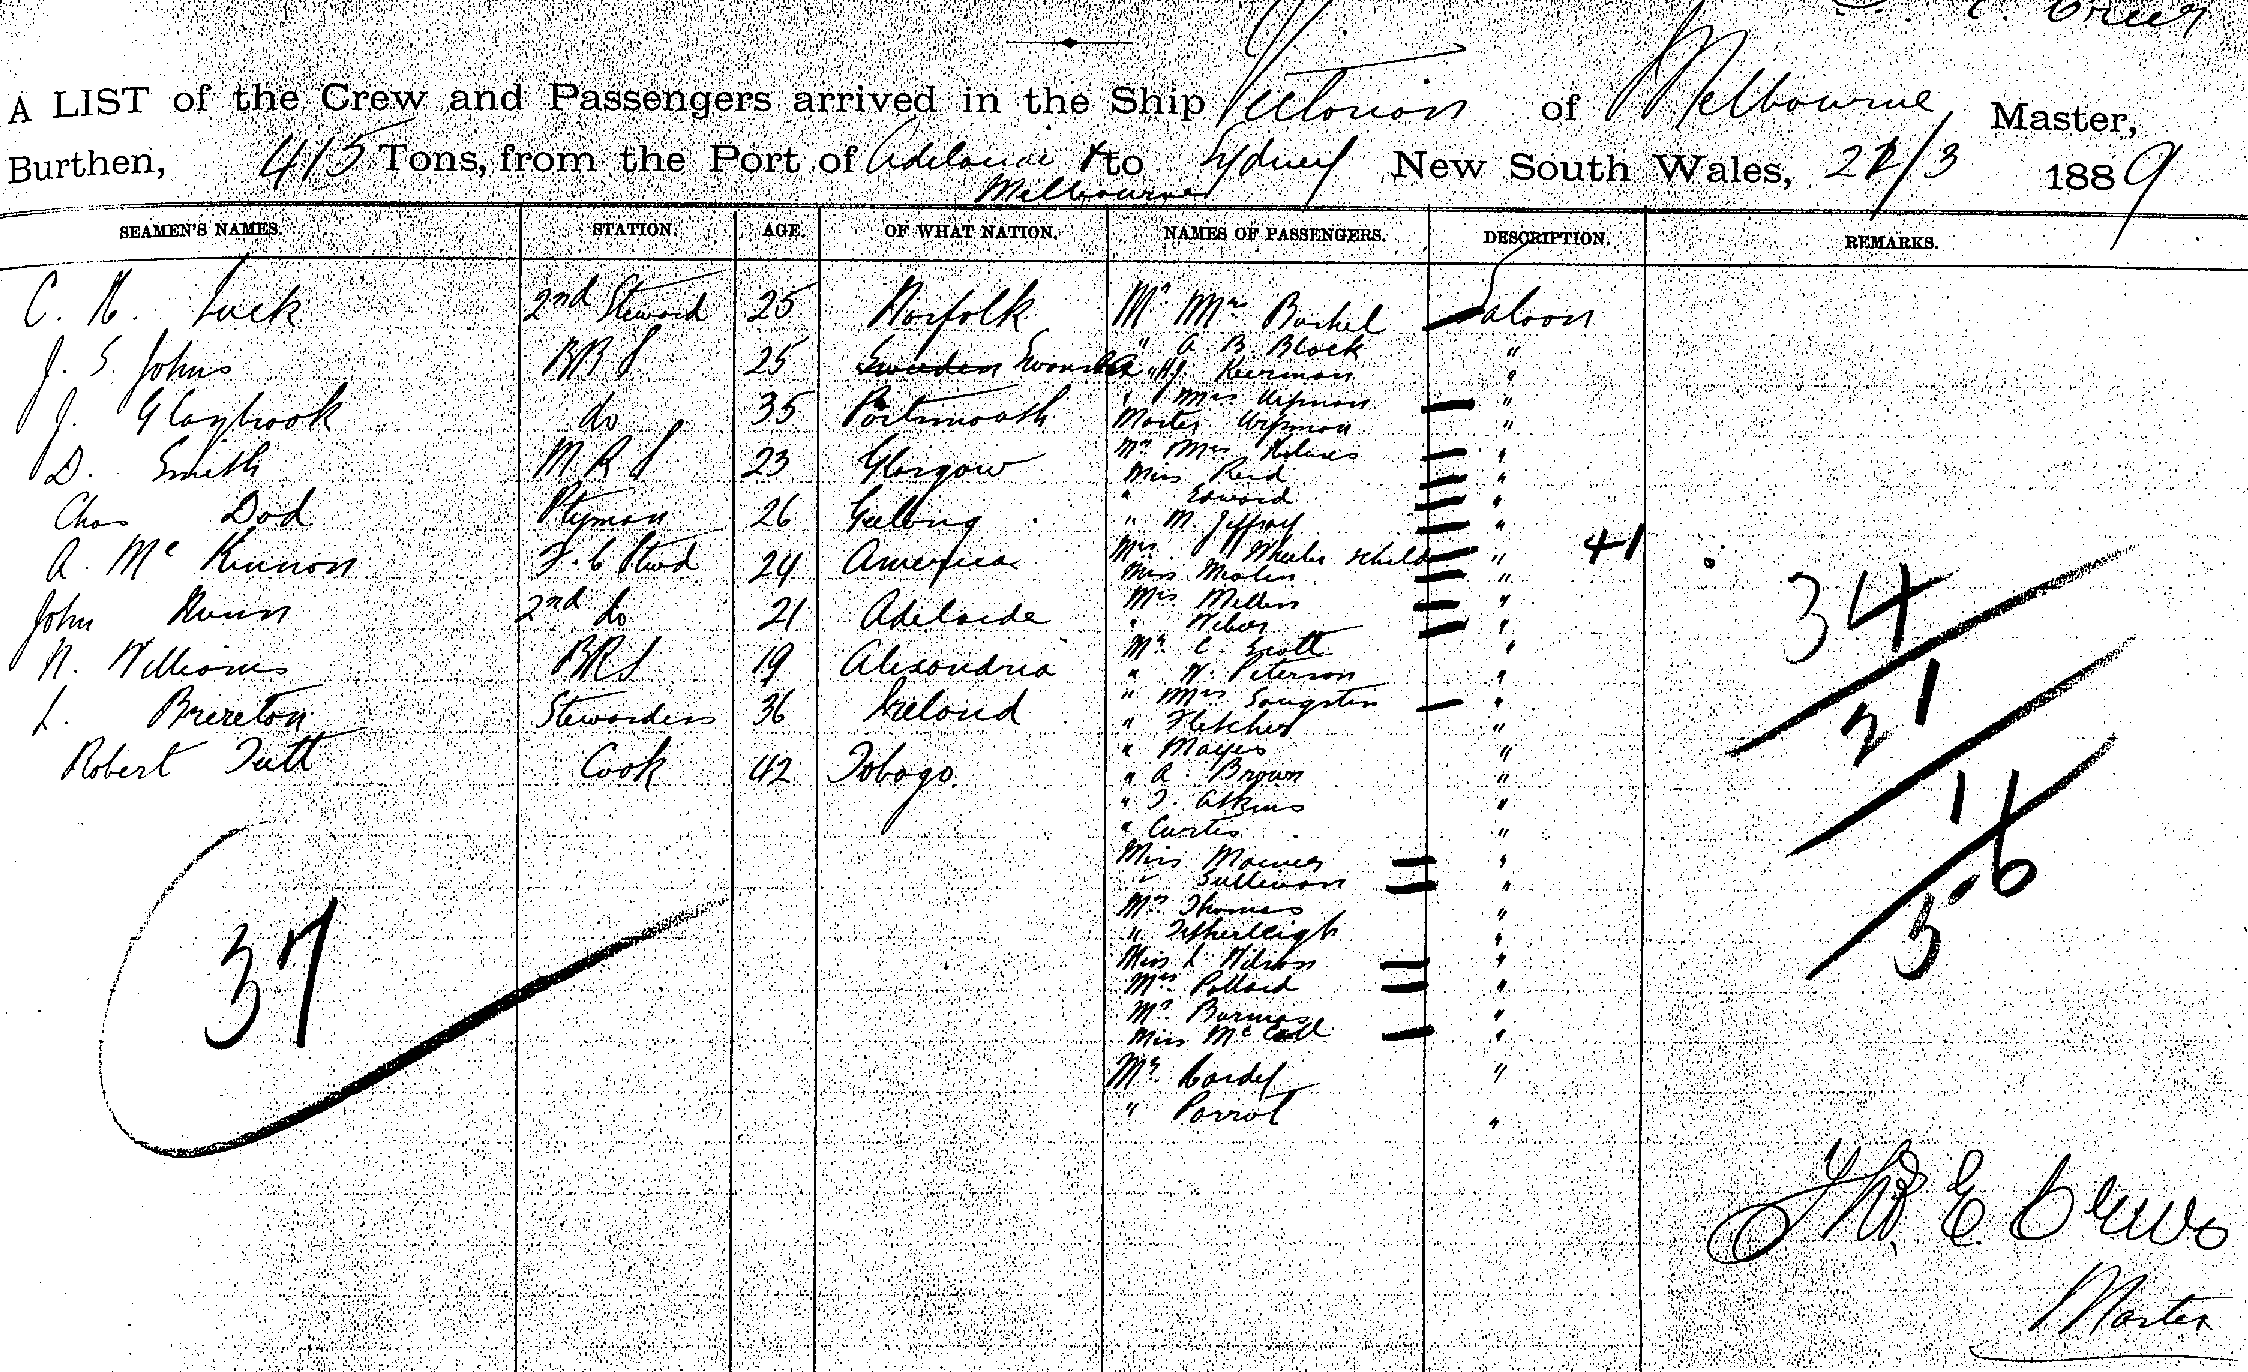 A LIST of the Crew and Passengers arrived in the Ship Victorian of Melbourne Master,
Burthen, 415 Tons, from the Port of Adelaide & Melbourne to Sydney New South Wales, 21/3 1889
SEAMEN'S NAMES. STATION. AGE. OF WHAT NATION. NAMES OF PASSENGERS. DESCRIPTION. REMARKS.
C. H. Luck 2nd Steward 25 Norfolk
J. S. Johns BRS 25 Sweden Swansea
J. Glaybrook do 35 Portsmouth
D. Smith MRS 23 Glasgow
Chas Dod Ptyman 26 Geelong
A. McKinnon F. C Stwd 24 America
John Nunn 2nd do 21 Adelaide
N. Williams BRS 19 Alexandria
L. Brereton Stewardess 36 Ireland
Robert Tutt Cook 42 Tobago.
37
Mr Mrs Bushel Saloon
" A B Block "
" Kerman "
" Mrs "
Master "
Mr Mrs "
Miss Reid "
" Edward "
" M. Jeffray "
Mrs Wheeler & child " 41
Miss "
Mrs Mellin "
" "
Mr. C. Scott "
" W. Peterson "
" Mrs Sangster "
" Fletcher "
" Mayes "
" A. Brown "
" T. Atkins "
" Curtis "
Miss "
" Sullivan "
Mr Thomas "
" "
Miss L Wilson "
Mrs Pollard "
Mr "
Miss McCall "
Mr. "
" Parrot "
34
21
16
5
Thos. E. Creer
Master